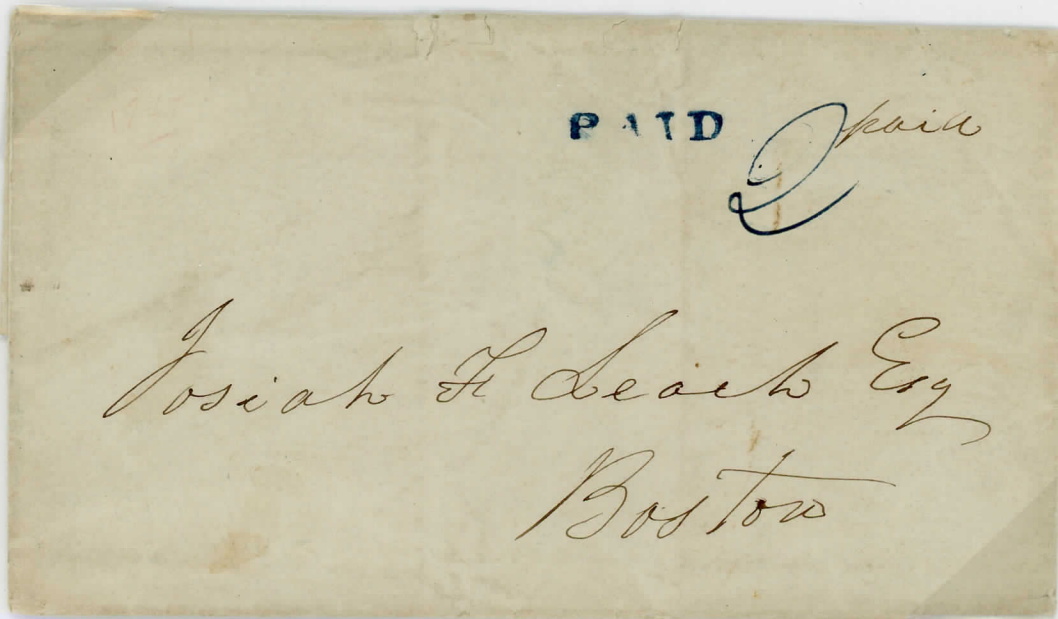 PAID 2 paid
Josiah F Leach Esq
Boston